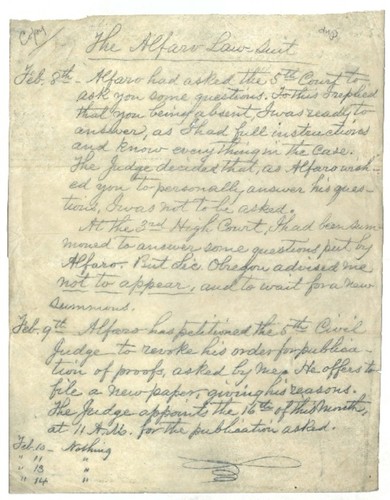 Copy
The Alfaro Law-suit
Feb. 8th - Alfaro had asked the 5th Court to
ask you some questions. To this I replied
that you being absent, I was ready to
answer, as I had full instructions
and know everything in the case.
The Judge decided that, as Alfaro wish-
ed you to personally answer his ques-
tions, I was not to be asked.
At the 3rd High Court, I had been sum-
moned to answer some questions put by
Alfaro. But Lic. Obregon advised me
not to appear, and to wait for a new
summons.
Feb. 9th Alfaro has petitioned the 5th Civil
Judge to revoke his order for publica-
tion of proofs, asked by me. He offers to
file a new paper, giving his reasons.
The Judge appoints the 16th of this Month,
at 11 A.M. for the publication asked.
Feb. 10 - Nothing
" 11 "
" 13 "
" 14 "